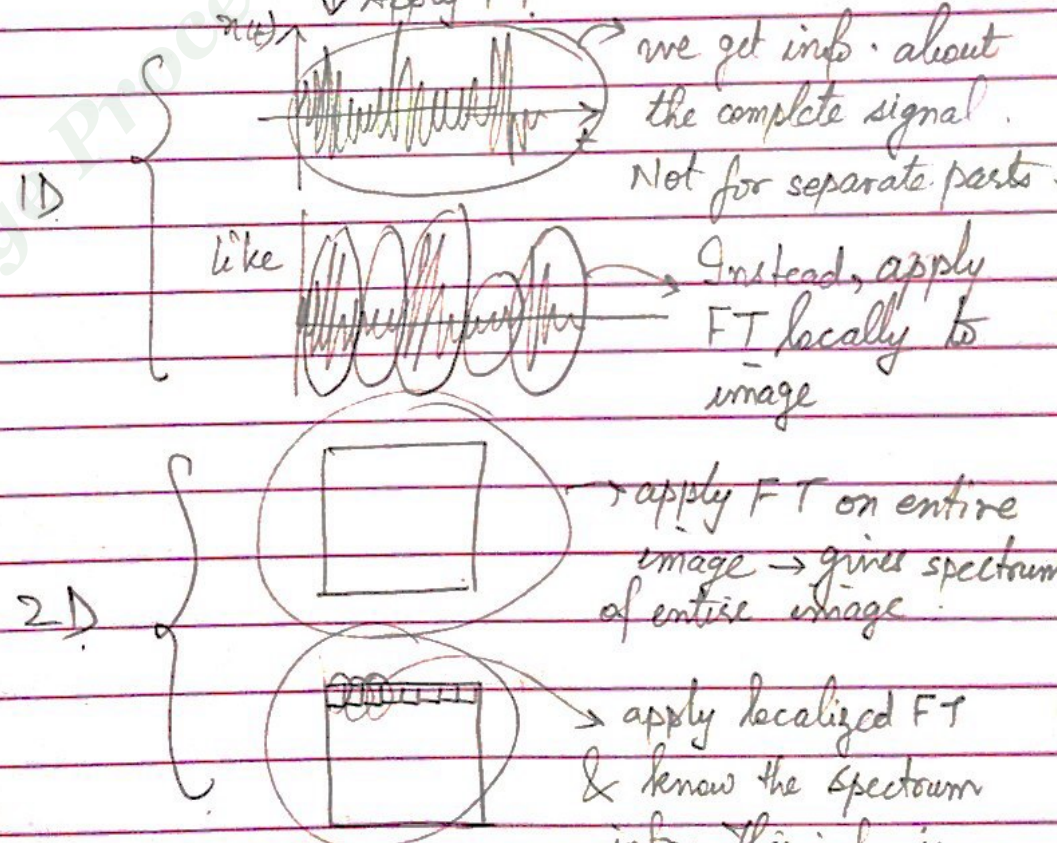 ↓ Apply FT
x(t)
t
we get info. about
the complete signal.
Not for separate parts.
1D
like
Instead, apply
FT locally to
image
apply FT on entire
image → gives spectrum
of entire image.
2D
apply localized FT
& know the spectrum
Proce
ge